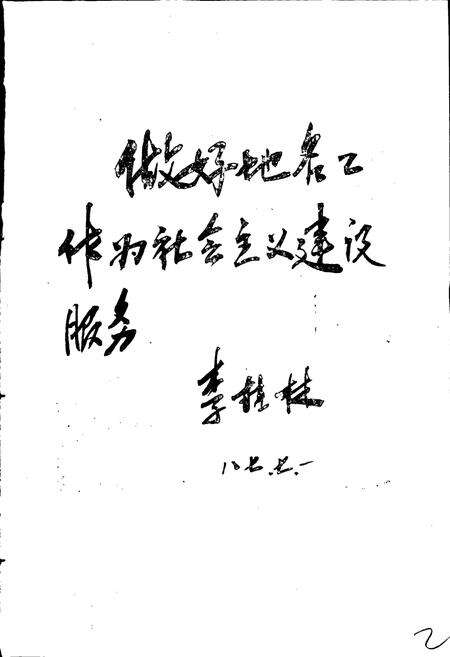 做好地名工
作为社会主义建设
服务
李桂林
八七.七.一
2